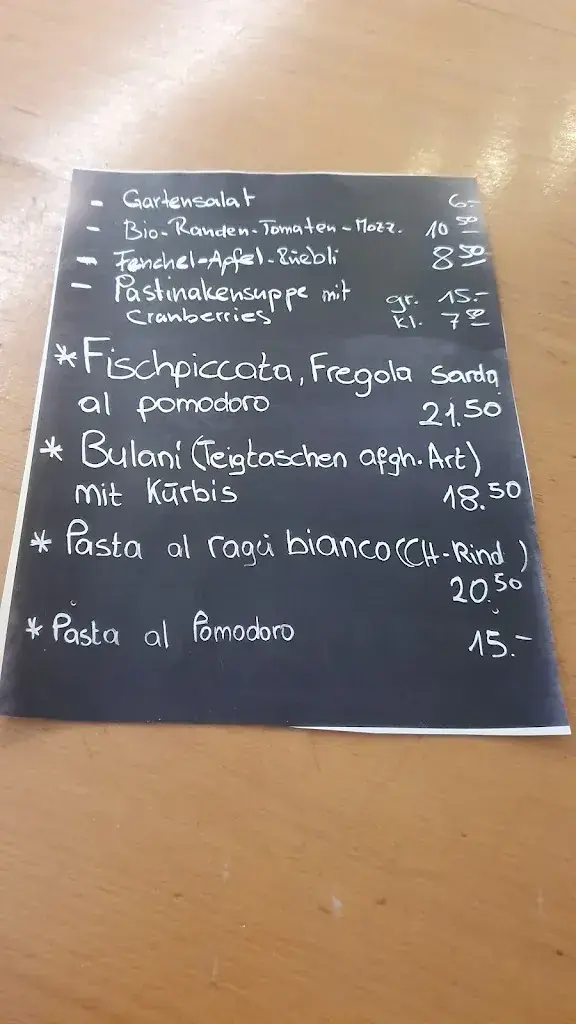 - Gartensalat 6.-
- Bio-Randen-Tomaten-Mozz. 10 50
- Fenchel-Apfel-Rüebli 8 50
- Pastinakensuppe mit gr. 15.-
Cranberries kl. 7 50
* Fischpiccata, Fregola sarda
al pomodoro 21.50
* Bulani (Teigtaschen afgh. Art)
mit Kürbis 18.50
* Pasta al ragú bianco (CH-Rind)
20.50
* Pasta al Pomodoro 15.-